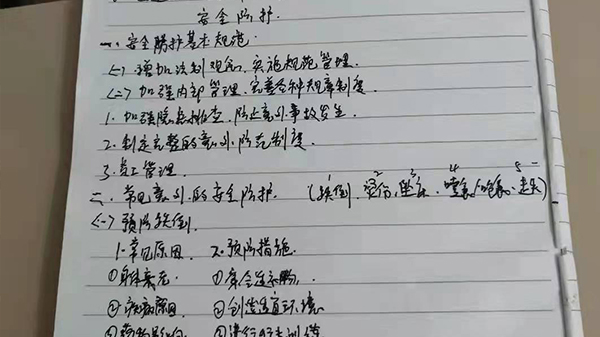 安全防护.
一、安全防护基本规范.
(一) 增加法制观念, 实施规范管理.
(二) 加强内部管理, 完善各种规章制度.
1. 加强隐患排查, 防止意外事故发生.
2. 制定完整的意外防范制度.
3. 员工管理.
二、常见意外的安全防护. (跌倒, 2烫伤, 3坠床, 4噎食/呛食, 5走失)
(一) 预防跌倒.
1. 常见原因. 2. 预防措施
①身体衰老. ①穿合适衣物.
②疾病原因. ②创造适宜环境.
③药物影响 ③进行行走训练